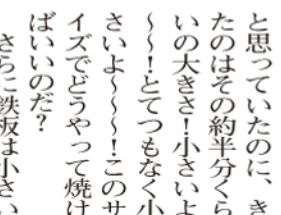 と思っていたのに、き
たのはその約半分くら
いの大きさ！小さいよ
〜〜！とてつもなく小
さいよ〜〜〜！このサ
イズでどうやって焼け
ばいいのだ？
さらに鉄板は小さい